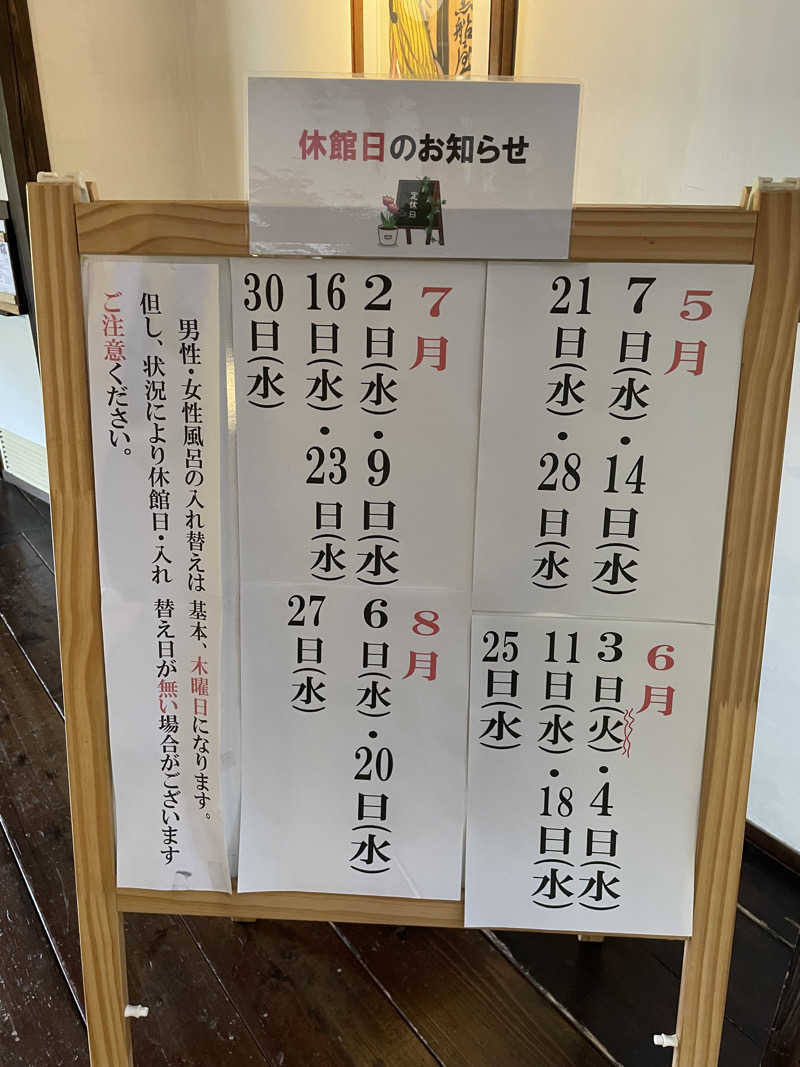 黒船屋
休館日のお知らせ
定休日
5月
7日(水)・14日(水)
21日(水)・28日(水)
6月
3日(火)・4日(水)
11日(水)・18日(水)
25日(水)
7月
2日(水)・9日(水)
16日(水)・23日(水)
30日(水)
8月
6日(水)・20日(水)
27日(水)
男性・女性風呂の入れ替えは 基本、木曜日になります。
但し、状況により休館日・入れ 替え日が無い場合がございます
ご注意ください。